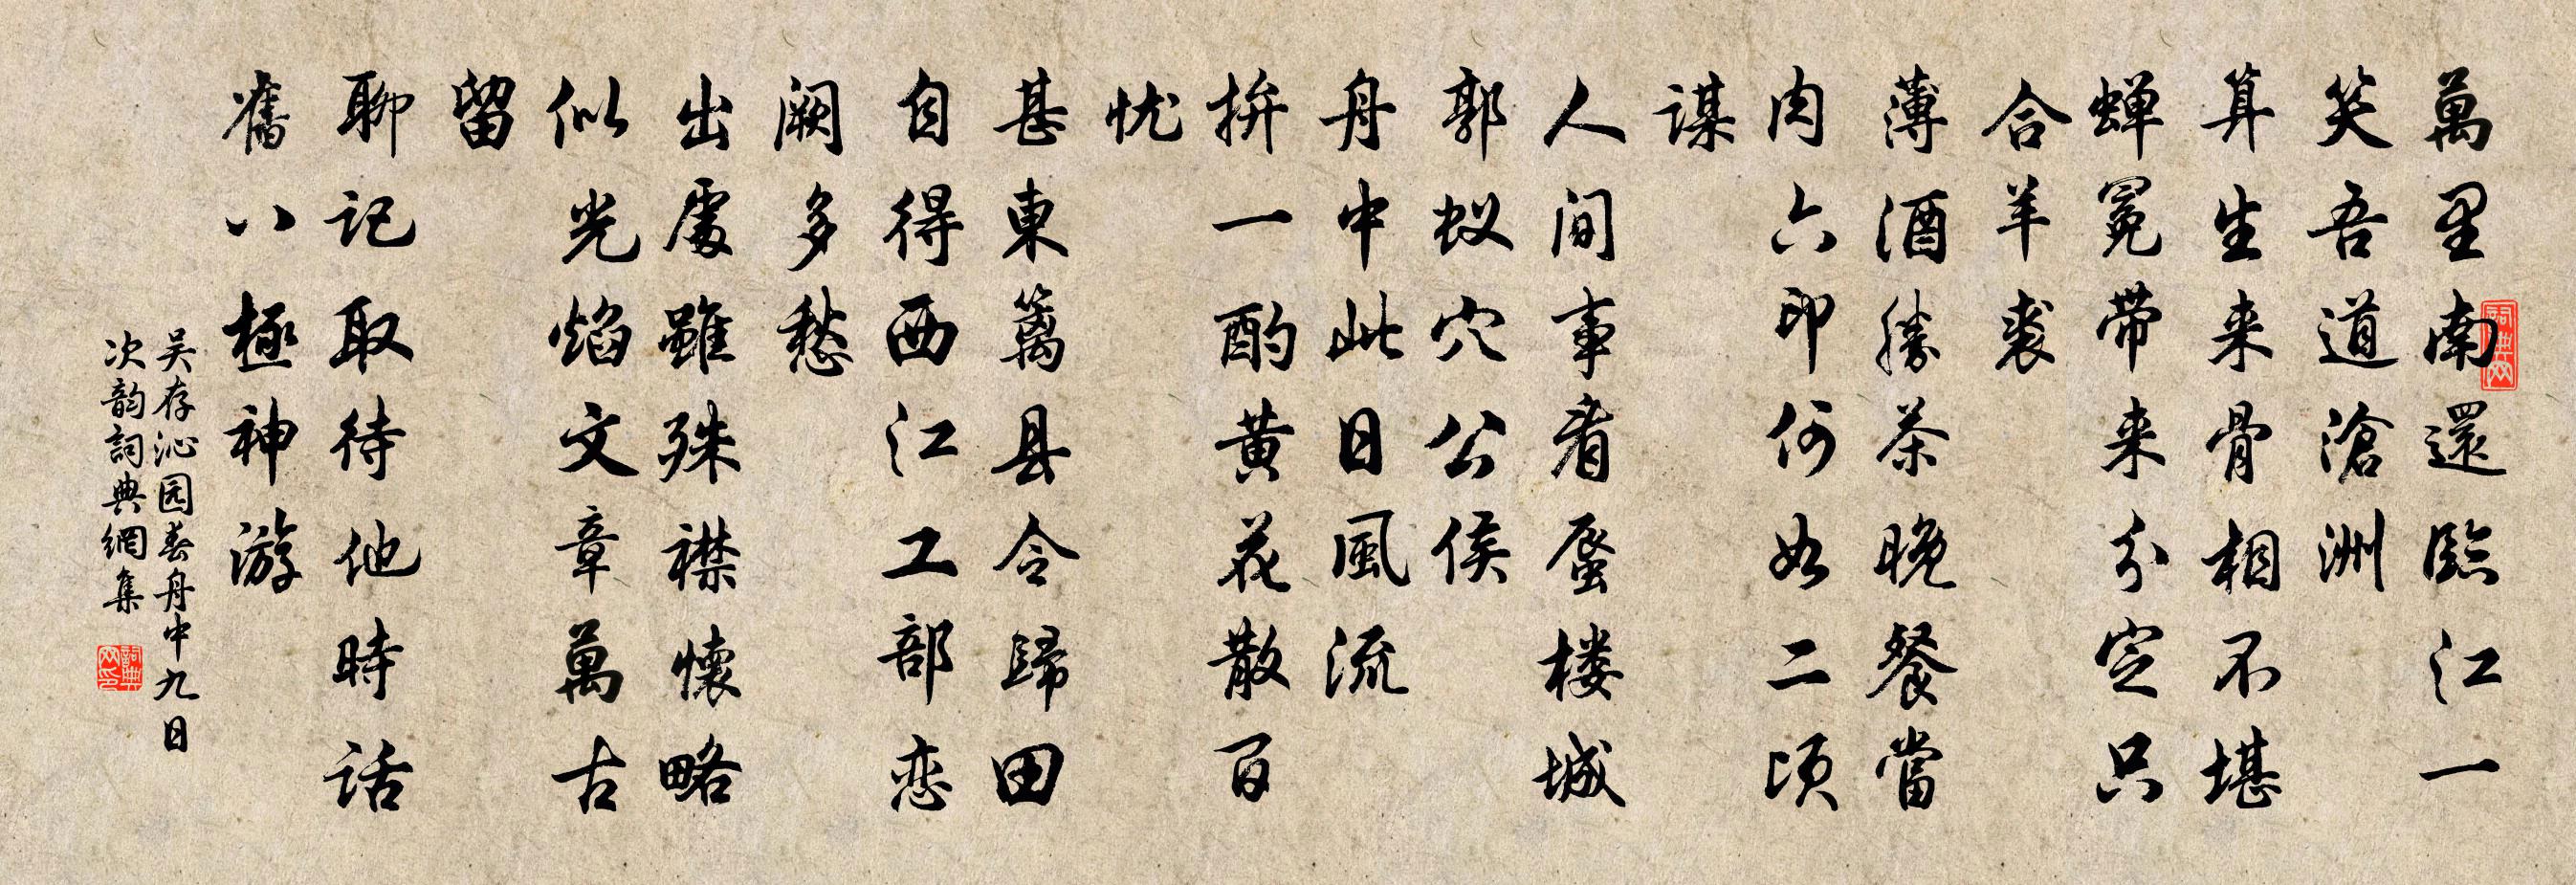 萬里南還臨江一
笑吾道滄洲
算生来骨相不堪
蝉冕带来分定只
合羊裘
薄酒勝茶晚餐當
肉六印何如二頃
謀
人间事看蜃楼城
郭蚁穴公侯
舟中此日風流
拚一酌黄花散百
忧
甚東篱县令歸田
自得西江工部恋
阙多愁
出處雖殊襟懷略
似光焰文章萬古
留
聊記取待他時話
舊八極神游
吴存沁园春舟中九日
次韵詞典網集
詞典网
詞典网印